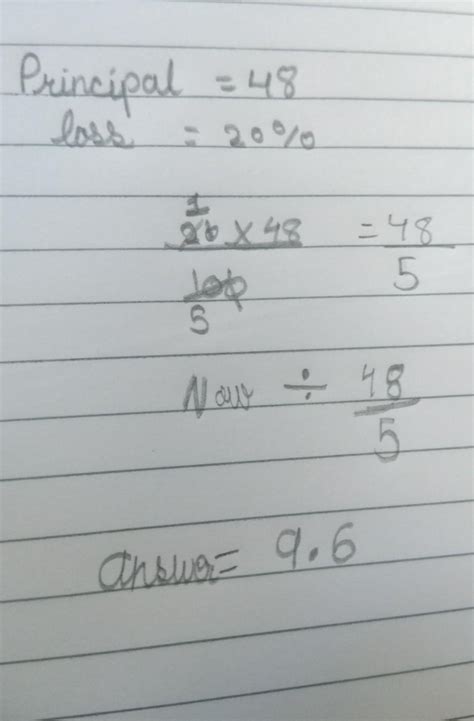 Principal = 48
loss = 20%
1
20 × 48 = 48
100 5
5
Now ÷ 48
5
answer = 9.6